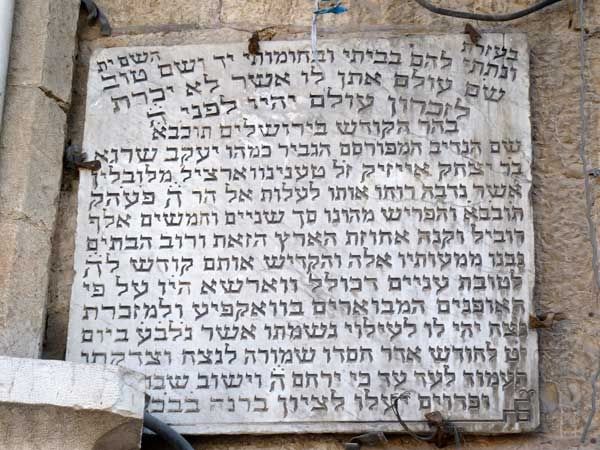 בעזרת השם ית
ונתתי להם בביתי ובחומותי יד ושם טוב
שם עולם אתן לו אשר לא יכרת
לזכרון עולם יהיו לפני ה
בהר הקודש בירושלים תובבא
שם הנדיב המפורסם הגביר כמהו יעקב שרגא
בן יצחק אייזיק זל טענינווארציל מלובלין
אשר נדבה רוחו אותו לעלות אל הר ה פעהק
תובבא והפריש מהונו סך שניים וחמשים אלף
רוביל וקנה אחוזת הארץ הזאת ורוב הבתים
נבנו ממעותיו אלה והקדיש אותם קודש לה
לטובת עניים דכולל ווארשא היו על פי
האופנים המבוארים בוואקפיע ולמזכרת
נצח יהי לו לעילוי נשמתו אשר נלבע ביום
יט לחודש אדר חסדו שמורה לנצח וצדקתו
העומד לעד עד כי ירחם ה וישוב
ופדוים יעלו לציון ברנה